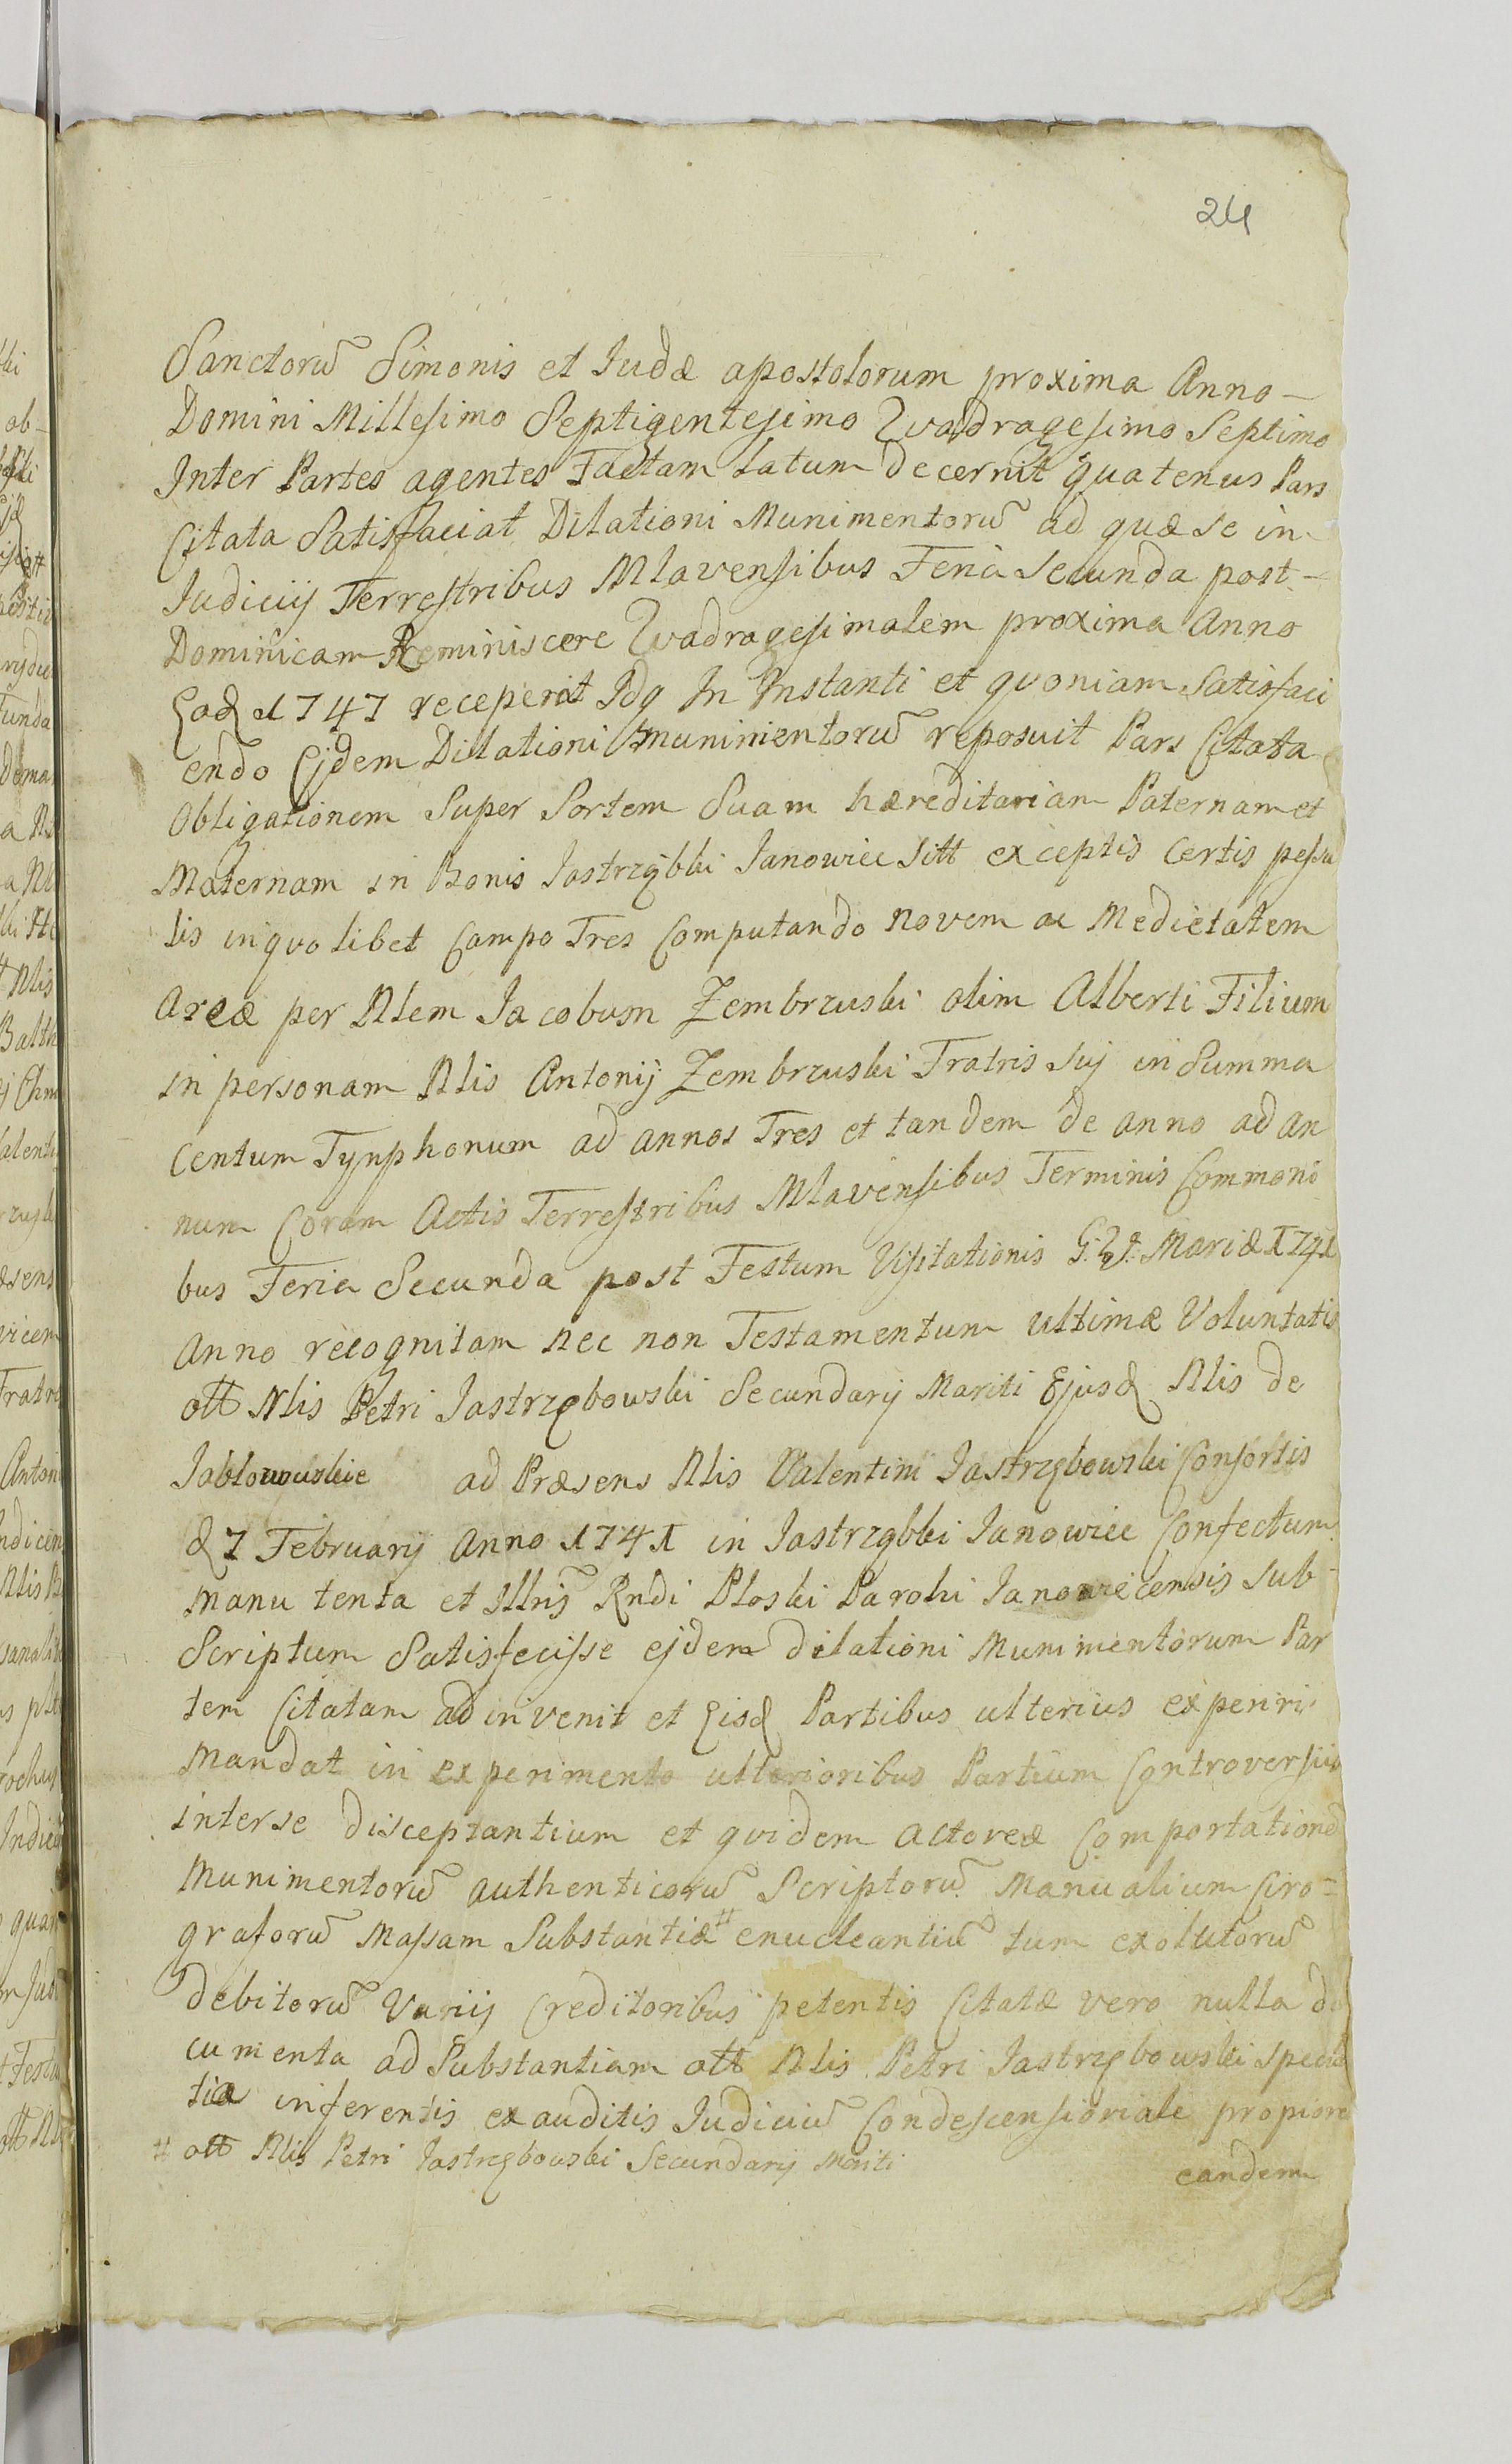 24
Sanctorū Simonis et Judæ apostolorum proxima Anno
Domini Millesimo Septigentesimo Qvadragesimo Septimo
Inter Partes agentes Factam Latum decernit quatenus Pars
Citata Satisfaciat Dilationi Munimentorū ad quæ se in
Judicijs Terrestribus Mlavensibus Feria Secunda post
Dominicam Reminiscere Qvadragesimalem proxima Anno
Eod 1747 receperat Idq In Instanti et qvoniam Satisfaci
endo Ejdem Dilationi Munimentorū reposuit Pars Citata
Obligationem Super Sortem Suam hæreditariam Paternam et
Maternam in Bonis Jastrząbki Janowiec sitt exceptis certis pessu
lis in qvolibet Campo Tres Computando novem ac Medietatem
Areæ per Nlem Jacobum Zembrzuski olim Alberti Filium
in personam Nlis Antonij Zembrzuski Fratris Suj in Summa
Centum Tynphonum ad annos Tres et tandem de anno ad an
num Coram Actis Terrestribus Mlavensibus Terminis Commoni
bus Feria Secunda post Festum Visitationis Mariæ 1741
Anno recognitam nec non Testamentum ultimæ Voluntatis
ott Nlis Petri Jastrzębowski Secundarij Mariti Ejusd Nlis de
Jabłonowskie ad Præsens Nlis Valentini Jastrzębowski Consortis
d 7 Februarij Anno 1741 in Jastrząbki Janowiec Confectum
manu tenta et Illris Rndi Ploski Parohi Janowiecensis sub
Scriptum Satisfecisse ejdem dilationi Munimentorum Par
tem Citatam adinvenit et Eisd Partibus ulterius experiri
mandat in experimento ulterioribus Partium Controversiis
inter se disceptantium et qvidem Actoreæ Comportatione
Munimentorū authenticorū Scriptorū Manualium Ciro=
graforū Massam Substantiæ # enucleantiū tum exolutorū
debitorū Varijs Creditoribus petentis Citatæ vero nulla do
cumenta ad Substantiam ott Nlis Petri Jastrzębowski specta
tia inferentis exauditis Judiciū Condescensioriale propiore
# ott Nlis Petri Jastrzębowski Secundarij Mariti
eandem